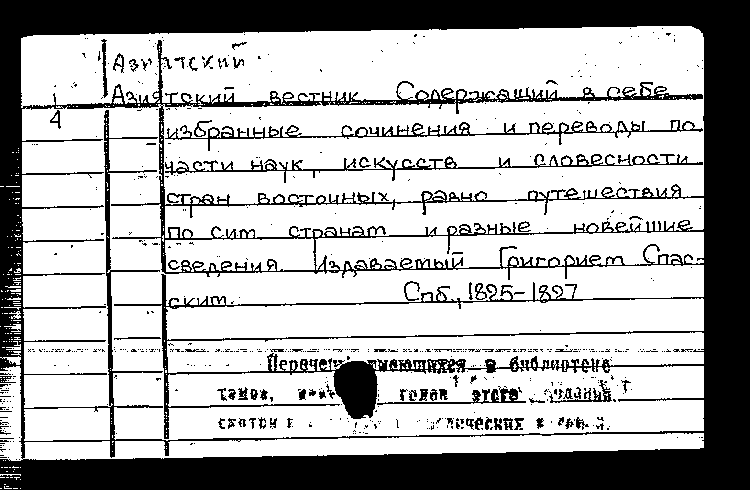 Азиатский
1 Азиятский вестник Содержащий в себе
4 избранные сочинения и переводы по
части наук, искусств и словесности
стран восточных, равно путешествия
по сим странам и разные новейшие
сведения Издаваемый Григорием Спас-
ским. Спб., 1825-1827
Перечень имеющихся в библиотеке
томов, годов этого издания
смотри